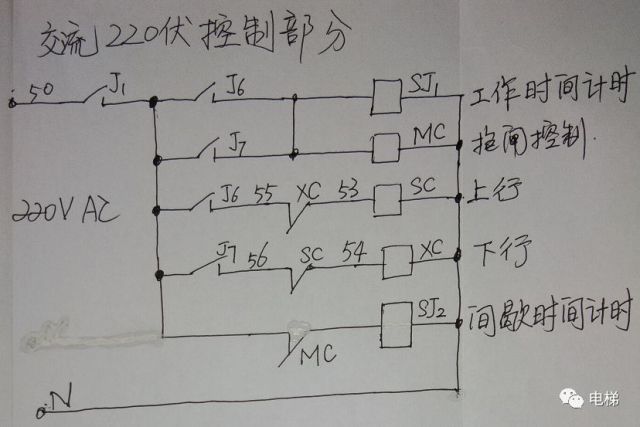 交流220伏控制部分
50 J1 J6 SJ1 工作时间计时
J7 MC 抱闸控制.
220V AC J6 55 XC 53 SC 上行
J7 56 SC 54 XC 下行
MC SJ2 间歇时间计时
N
电梯